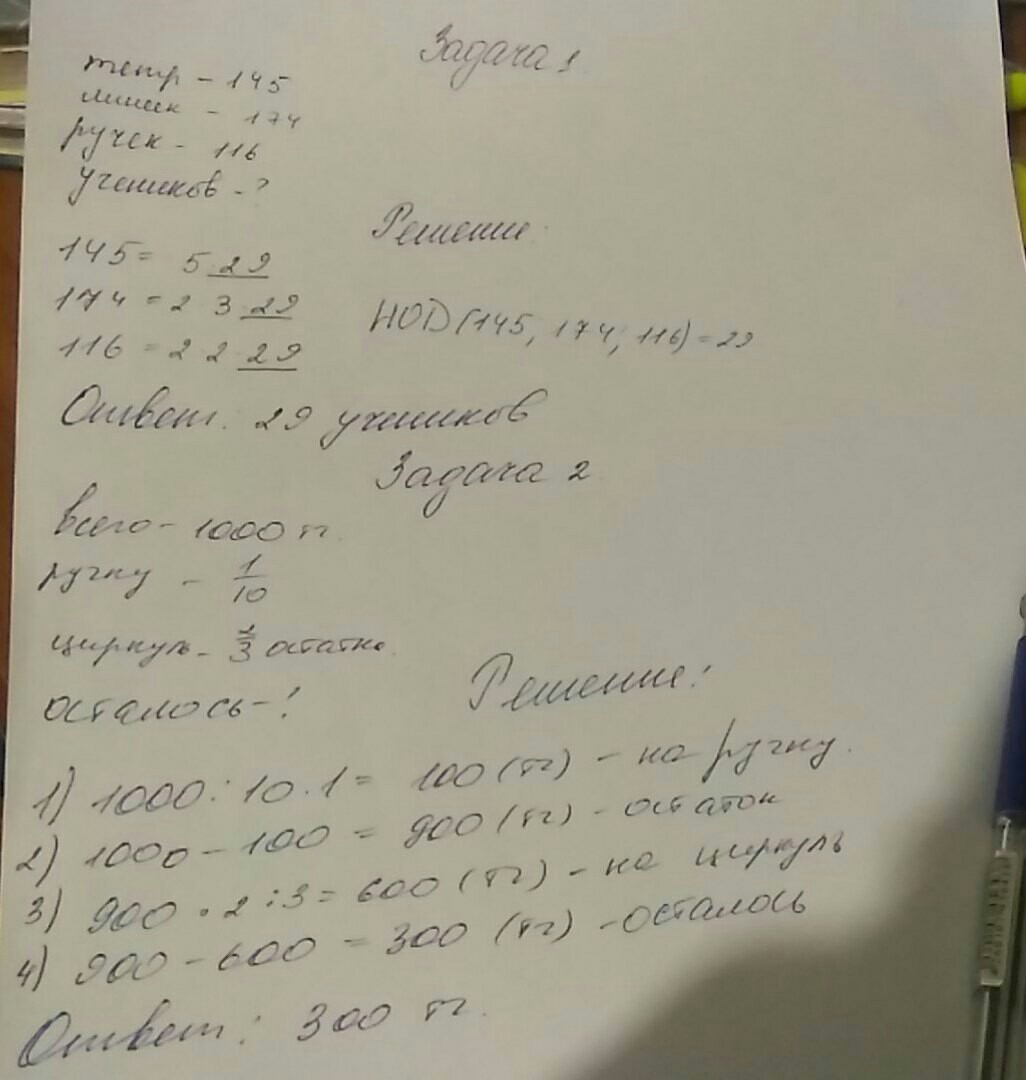 Задача 1
тетр - 145
линеек - 174
ручек - 116
учеников - ?
Решение:
145 = 5 · 29
174 = 2 · 3 · 29
116 = 2 · 2 · 29
НОD (145, 174, 116) = 29
Ответ: 29 учеников
Задача 2
Всего - 1000 тг.
ручку - 1/10
циркуль - 2/3 остатка
осталось - ?
Решение:
1) 1000 : 10 · 1 = 100 (тг) - на ручку.
2) 1000 - 100 = 900 (тг) - остаток
3) 900 · 2 : 3 = 600 (тг) - на циркуль
4) 900 - 600 = 300 (тг) - осталось
Ответ: 300 тг.